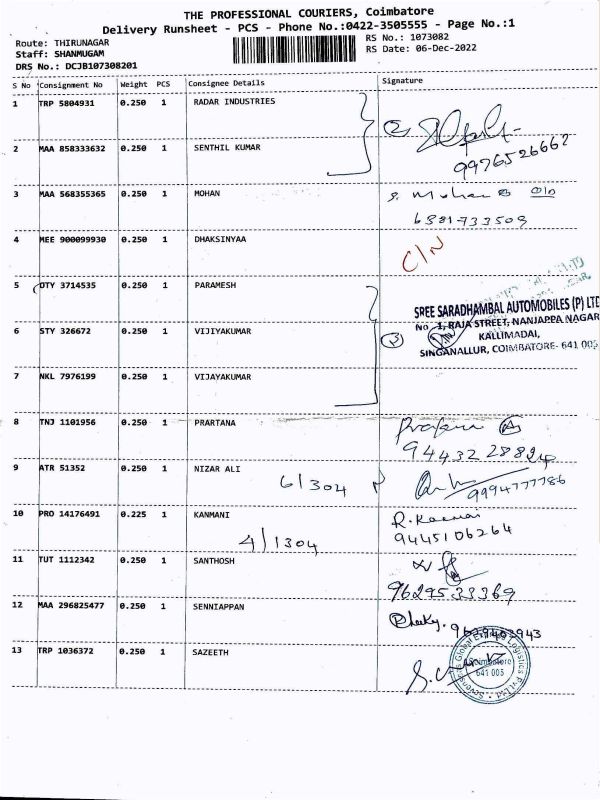 THE PROFESSIONAL COURIERS, Coimbatore
Delivery Runsheet - PCS - Phone No.:0422-3505555 - Page No.:1
Route: THIRUNAGAR
Staff: SHANMUGAM
DRS No.: DCJB107308201
RS No.: 1073082
RS Date: 06-Dec-2022
S No Consignment No Weight PCS Consignee Details Signature
1 TRP 5804931 0.250 1 RADAR INDUSTRIES
2 MAA 858333632 0.250 1 SENTHIL KUMAR
9976526662
3 MAA 568355365 0.250 1 MOHAN
S. Mohan
6381733509
4 MEE 900099930 0.250 1 DHAKSINYAA
C/N
5 DTY 3714535 0.250 1 PARAMESH
SREE SARADHAMBAL AUTOMOBILES (P) LTD
No. 1, RAJA STREET, NANJAPPA NAGAR
KALLIMADAI,
SINGANALLUR, COIMBATORE- 641 005
6 STY 326672 0.250 1 VIJIYAKUMAR
3
7 NKL 7976199 0.250 1 VIJAYAKUMAR
8 TNJ 1101956 0.250 1 PRARTANA
9443228824
9 ATR 51352 0.250 1 NIZAR ALI
6/304
9994777786
10 PRO 14176491 0.225 1 KANMANI
4/1304
R. Kanmani
9445106264
11 TUT 1112342 0.250 1 SANTHOSH
9629533369
12 MAA 296825477 0.250 1 SENNIAPPAN
13 TRP 1036372 0.250 1 SAZEETH
Global Logistics Pvt Ltd
Coimbatore
641 005